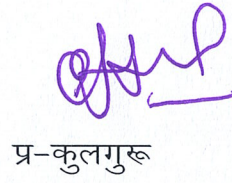 प्र-कुलगुरू